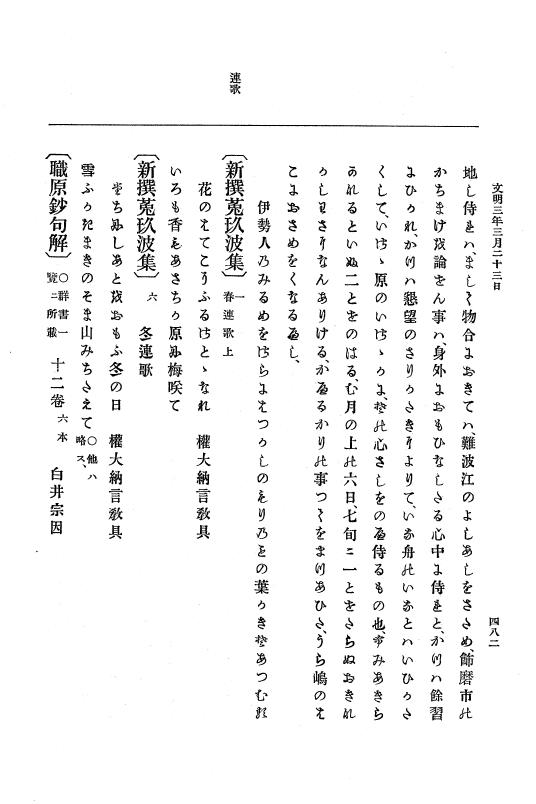 文明三年三月二十三日
四八二
連歌
地し侍れハ、まして物合におきてハ、難波江のよしあしをさため、飾磨市の
かちまけを論せん事ハ、身外におもひなしたる心中に侍れと、かつハ餘習
にひかれ、かつハ懇望のさりかたきによりて、いな舟のいなとハいひかた
くして、いさゝ原のいさゝかに、その心さしをのへ侍るもの也、やみあきら
かしまさりなんありける、かゝるかりの事つくをまつあひた、うら嶋のは
こにおさめをくなるへし、
伊勢人乃みるめをはらにはつかしのもり乃ことの葉かきそあつむる
〔新撰菟玖波集〕 一 春連歌上
花のはてこかふるさとゝなれ 權大納言敎具
いろも香もあさちか原に梅咲て
〔新撰菟玖波集〕 六 冬連歌
そちぬしあとをおもふ冬の日 權大納言敎具
雪ふかたまきのそま山みちたえて ○他ハ略ス、
〔職原鈔句解〕 ○群書一覽ニ所載 十二卷 六本 白井宗因